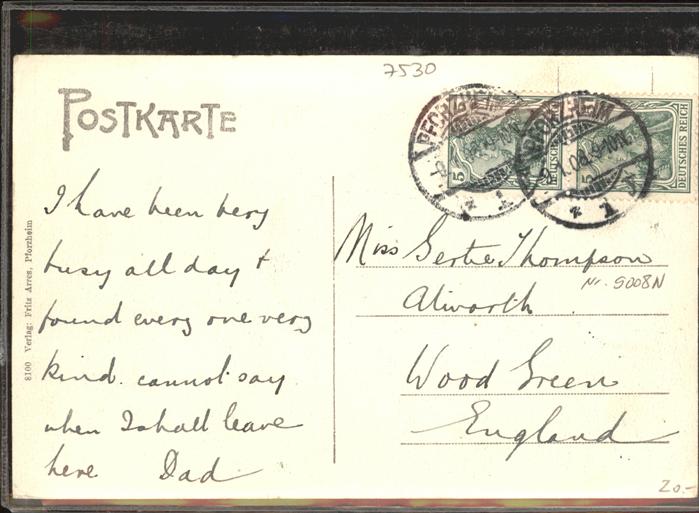 7530
POSTKARTE
PFORZHEIM
PFORZHEIM
5
DEUTSCHES REICH
5
DEUTSCHES REICH
I have been very
busy all day +
found every one very
kind. cannot say
when I shall leave
here Dad
Miss Gertie Thompson
Nr. S008N
Alworth
Wood Green
England
8100 Verlag: Fritz Arres, Pforzheim
20.-